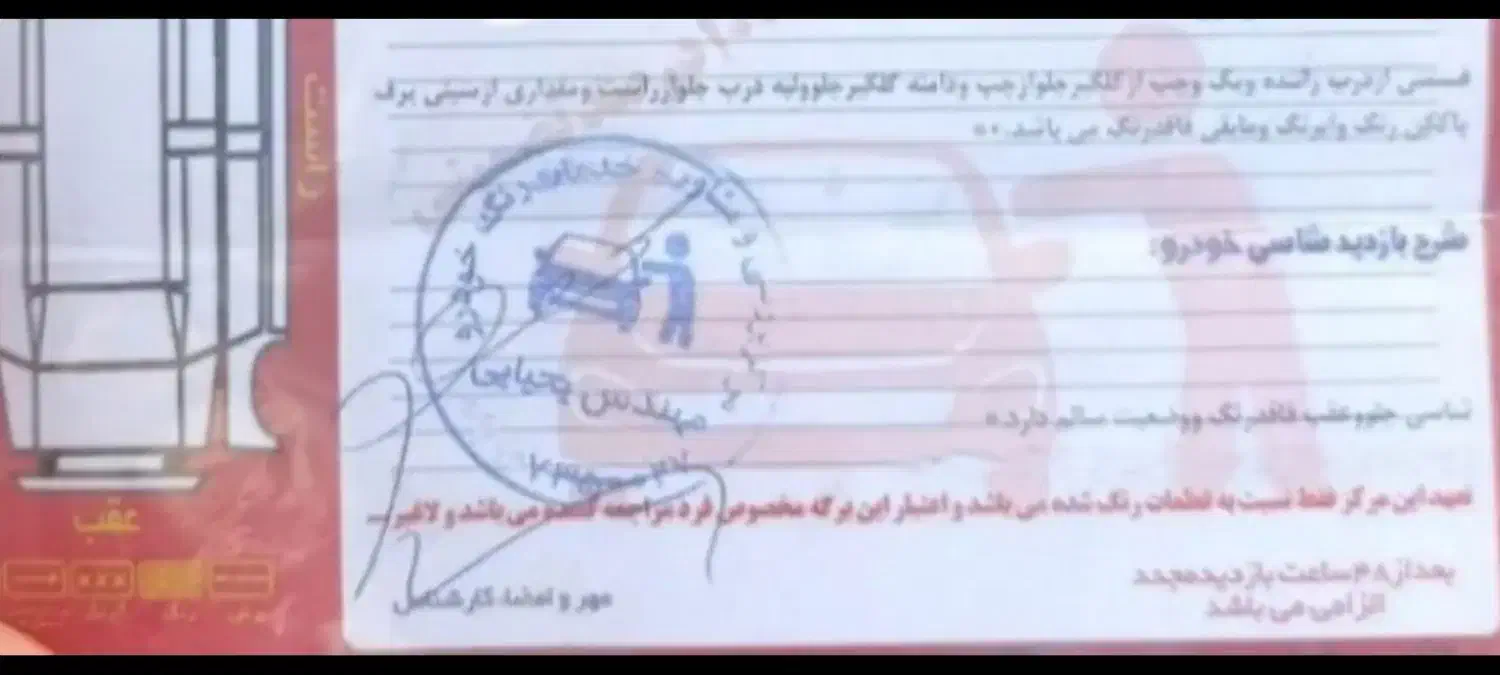 قسمتی از درب راننده ویک وجب از گلگیر جلوازچپ ودامنه گلگیر جلوولبه درب جلوازراست ومقداری ازسینی برف
پاکن رنگ وابرنگ ومابقی فاقدرنگ می باشد.**
شرح بازدید شاسی خودرو:
شاسی جلووعقب فاقدرنگ ووضعیت سالم دارد*
تعهد این مرکز فقط نسبت به قطعات رنگ شده می باشد و اعتبار این برگه مخصوص فرد مراجعه کننده می باشد و لاغیر
بعداز ۴۸ ساعت بازدید مجدد
الزامی می باشد
مهر و امضاء کارشناس
خدمات رنگ خودرو
مهندس یحیایی
راست
عقب
رنگ